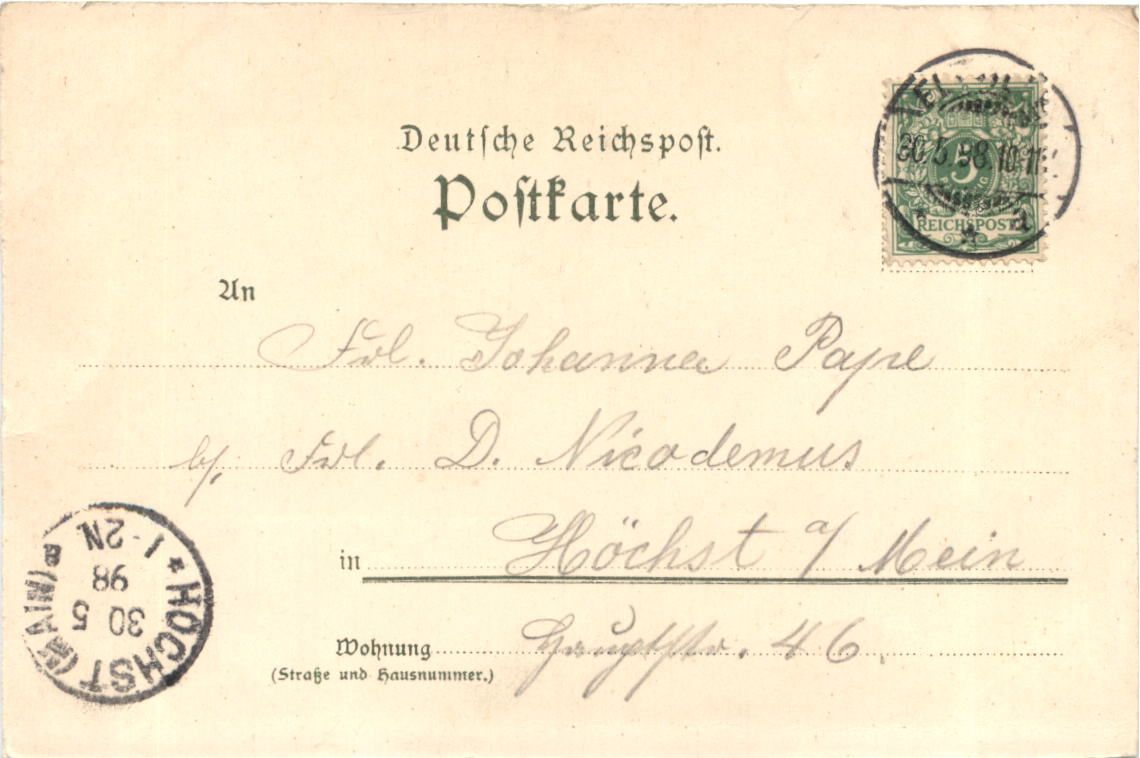 Deutsche Reichspost.
Postkarte.
30.5.98.10-11V.
a
5
PFENNIG
REICHSPOST
An
Frl. Johanna Pape
b/. Frl. D. Nicodemus
in Höchst a/ Mein
Wohnung Hauptstr. 46.
(Straße und Hausnummer.)
* HÖCHST (MAIN) a
30 5
98
1-2N